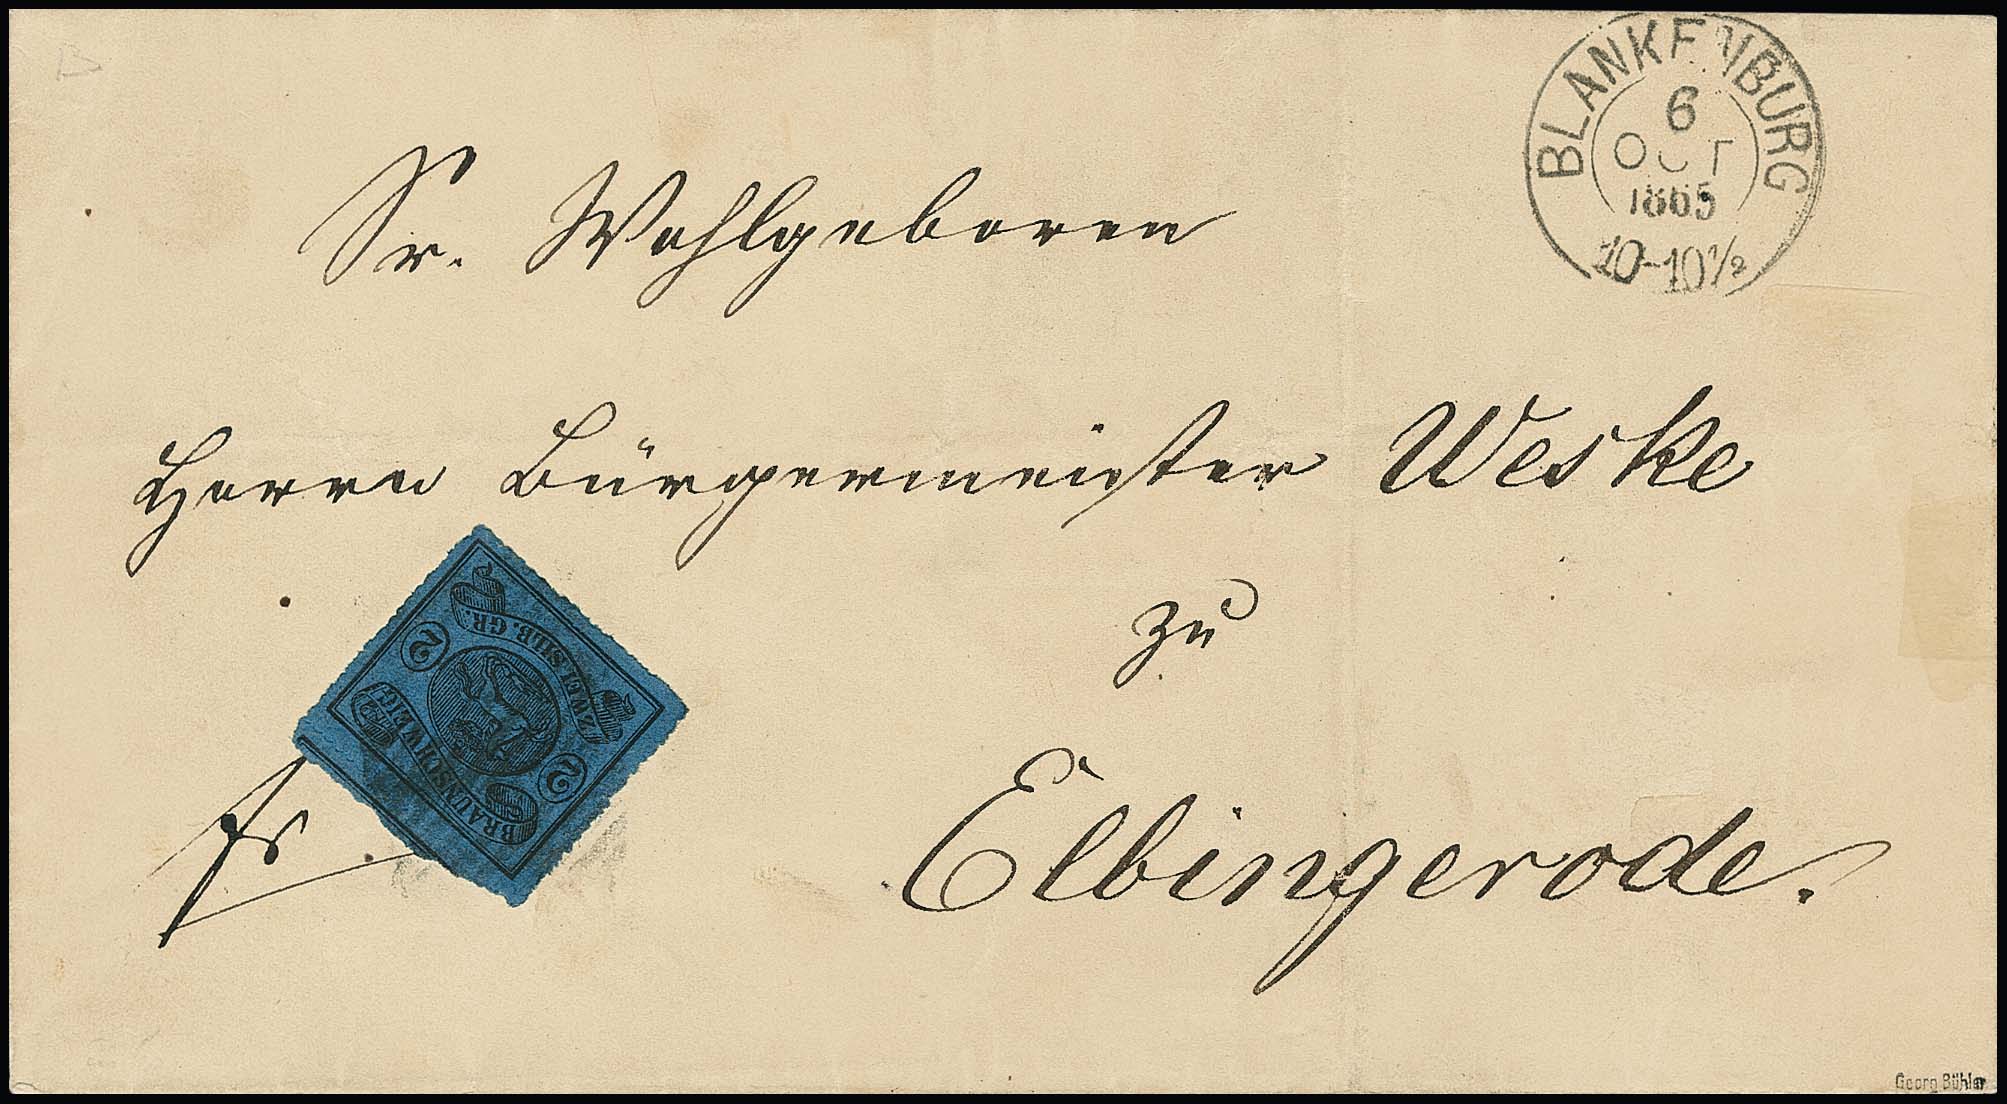 BLANKENBURG
6
OCT
1865
10-10½
Sr. Wohlgeboren
Herrn Bürgermeister Weske
zu
Elbingerode.
fr
ZWEI SILB. GR.
2
2
BRAUNSCHWEIG
Georg Bühler